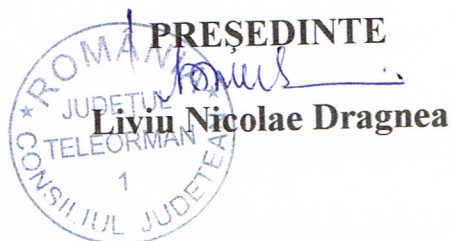 PREŞEDINTE
Liviu Nicolae Dragnea
ROMÂNIA
JUDEŢUL
TELEORMAN
1
CONSILIUL JUDEŢEAN